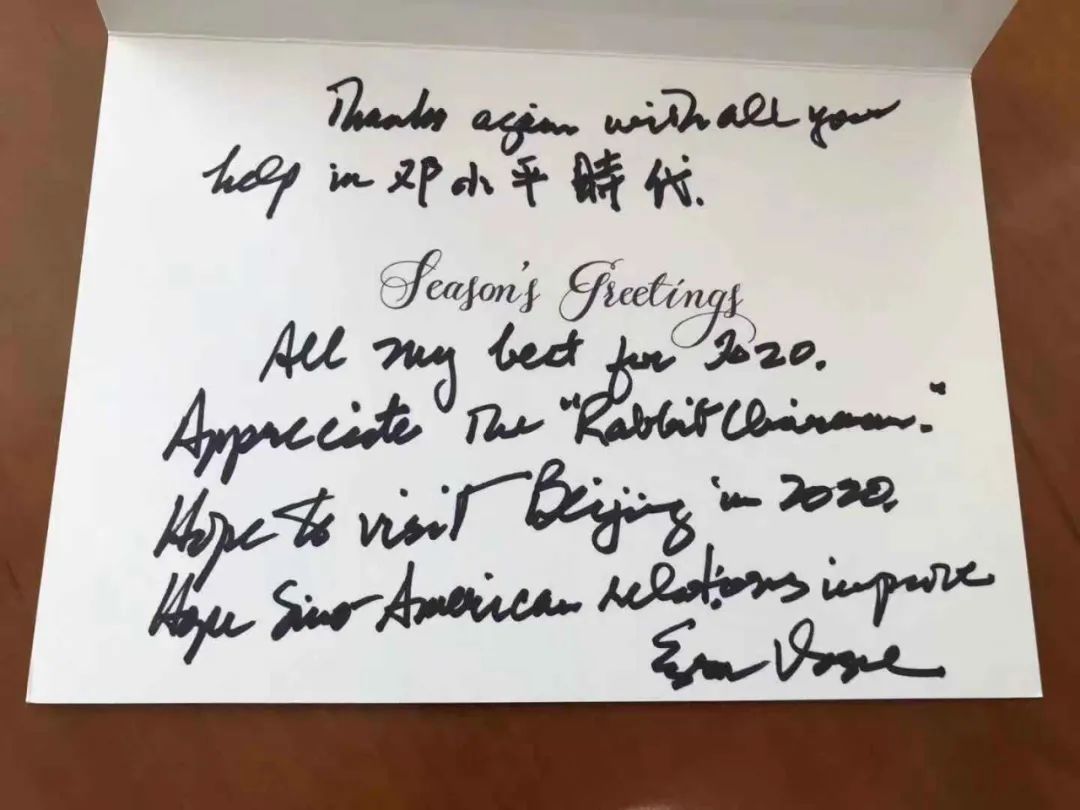 Thanks again with all your
help in 邓小平時代.
Season's Greetings
All my best for 2020.
Appreciate the "Rabbit Chairman."
Hope to visit Beijing in 2020.
Hope Sino-American relations improve
Ezra Vogel